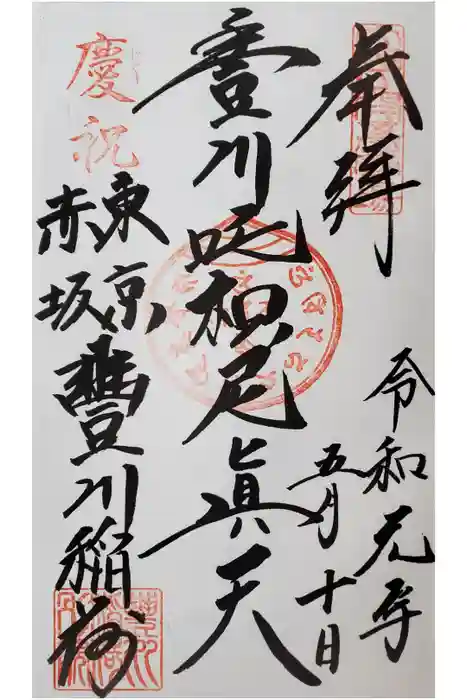 奉拜
令和元年
五月十日
豊川吒枳尼眞天
慶祝
東京
赤坂
豐川稲荷